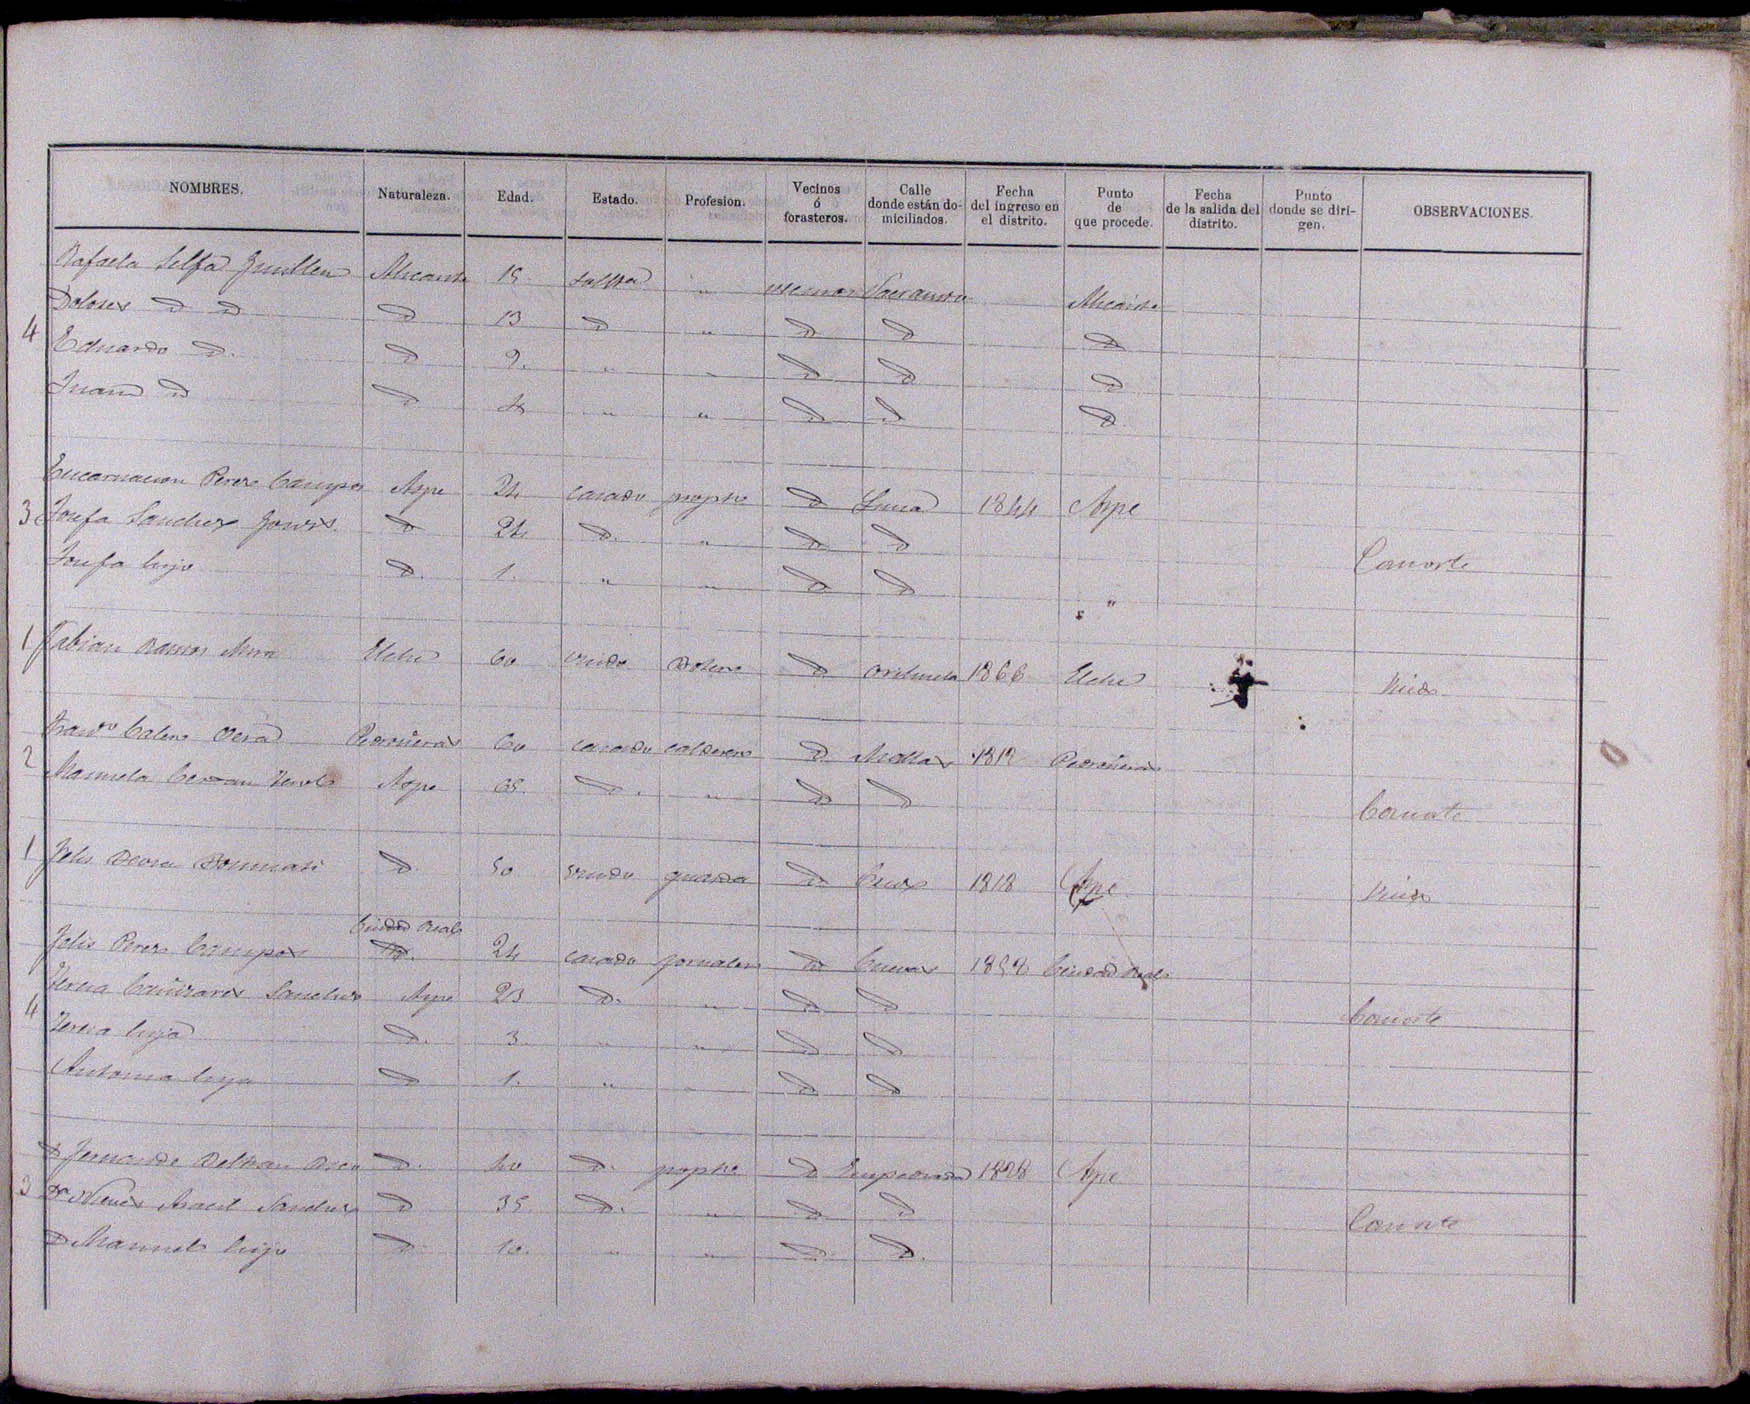 NOMBRES. Naturaleza. Edad. Estado. Profesion. Vecinos ó forasteros. Calle donde están domiciliados. Fecha del ingreso en el distrito. Punto de que procede. Fecha de la salida del distrito. Punto donde se dirigen. OBSERVACIONES.
Rafaela Selfa Guillen Alicante 15 soltera " vecinos Alicante
Dolores D D D 13 D " D D D
4 Eduardo D. D 9. " " D D D
Juan D D " " D D D
Encarnacion Perez Campos Aspe 24 casado D Luna 1844 Aspe
3 Josefa Sanchez D 24 D. " D D Consorte
Josefa hija D. 1. " " D D "
1 Fabian Ramos Mira Elche 60 viudo D Orihuela 1866 Elche Viudo
Calero Vera Pedroñeras 60 casado calderero D 1812 Pedroñeras
2 Manuela Aspe 65. D. " D D Consorte
1 Felis D. 50 viudo guarda D Cruz 1818 Aspe Viudo
Ciudad Real
Felis Perez Campos D. 24 casado jornalero D Cuevas 1858 Ciudad Real
Teresa Cañizares Sanchez Aspe 23 D. " D D Consorte
4 Teresa hija D. 3 " " D D
Antonia hija D 1. " " D D
D. Fernando Beltran D. 40 D. D Empedrada 1828 Aspe
3 Dª Nieves Sanchez D 35. D. " D D Consorte
D Manuel hijo D. 10. " " D. D.